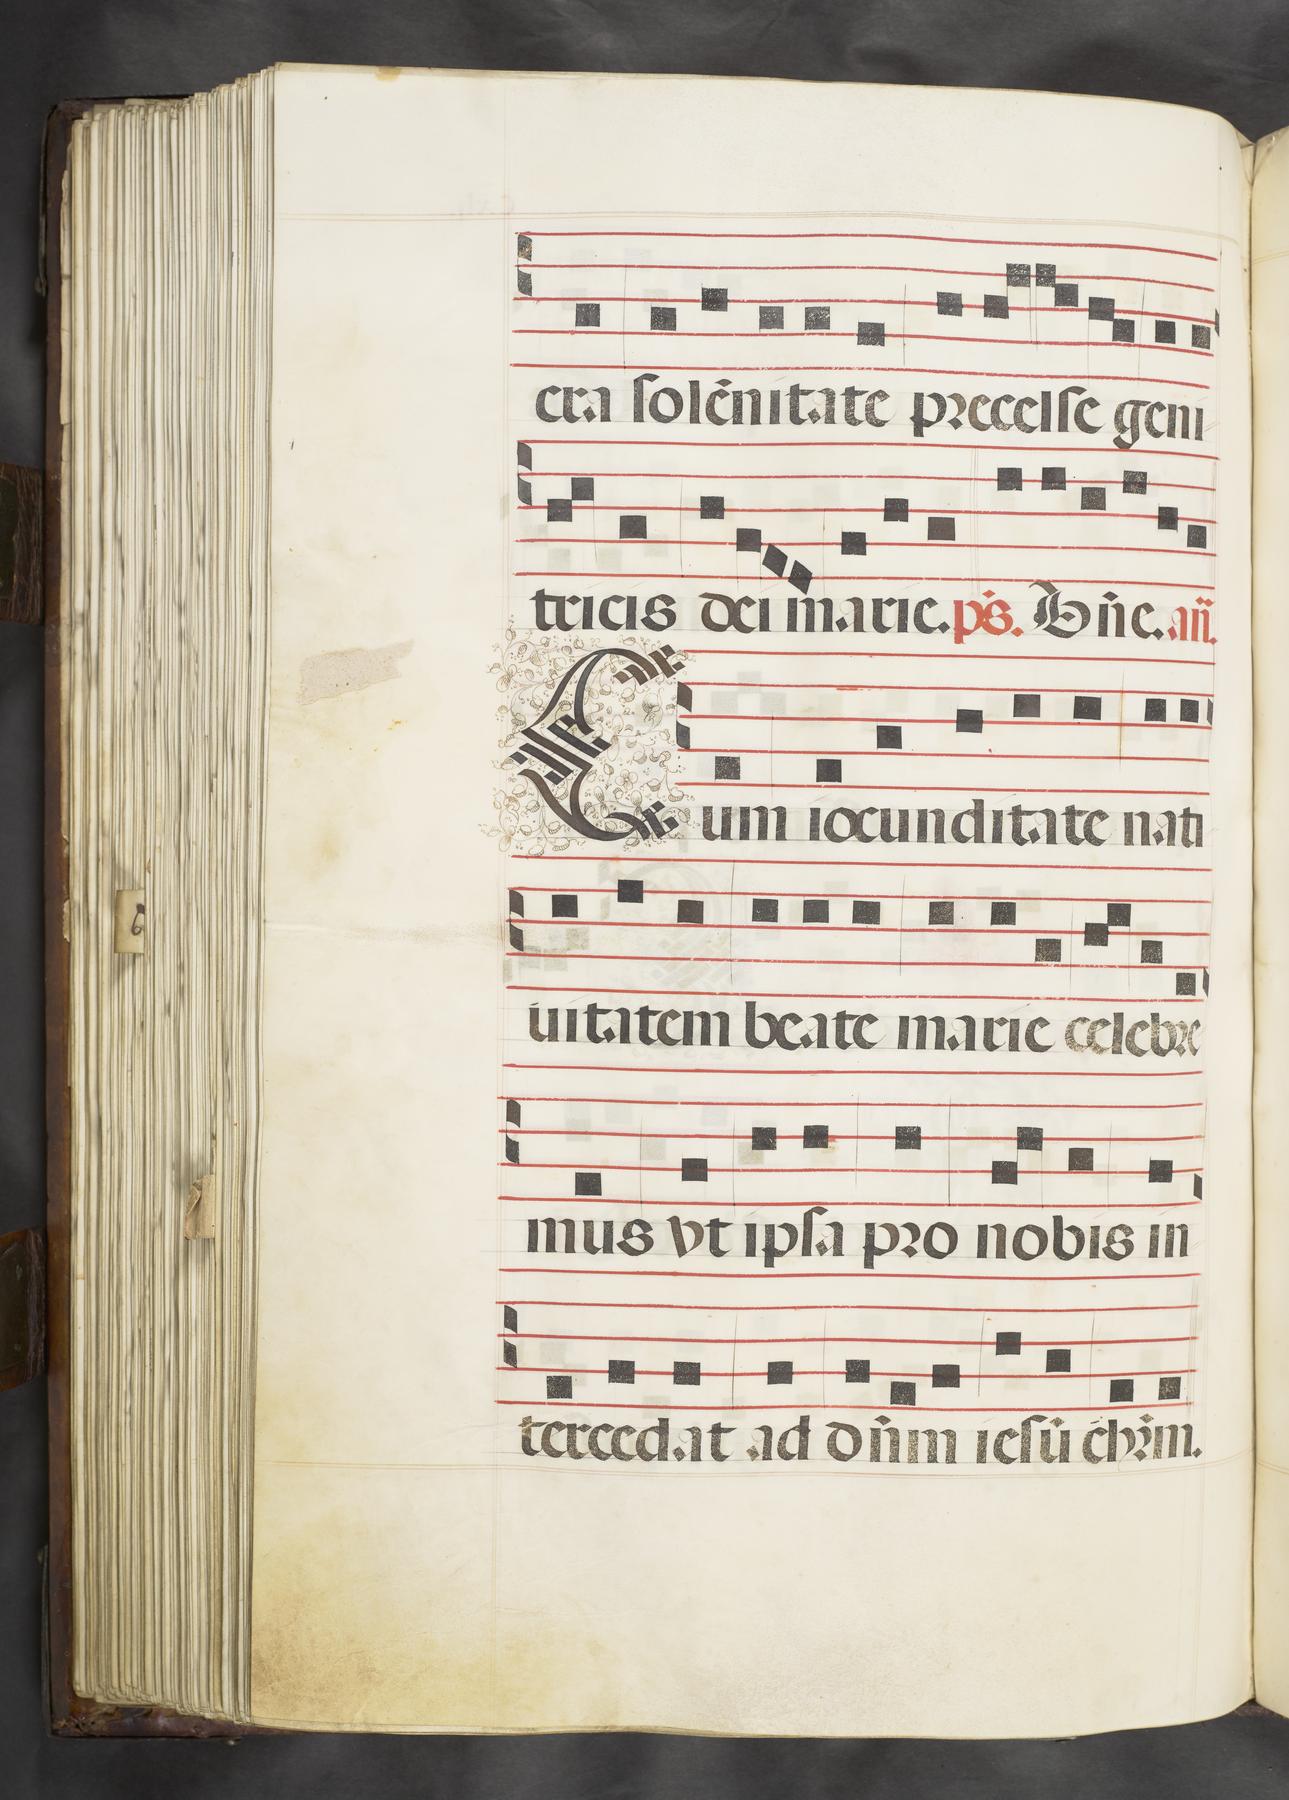 cra solēnitate precelse geni
tricis dei marie. ps̄. Dn̄e. an̄.
Cum iocunditate nati
uitatem beate marie celebre
mus vt ipsa pro nobis in
tercedat ad dn̄m iesū ch̄rm.
6